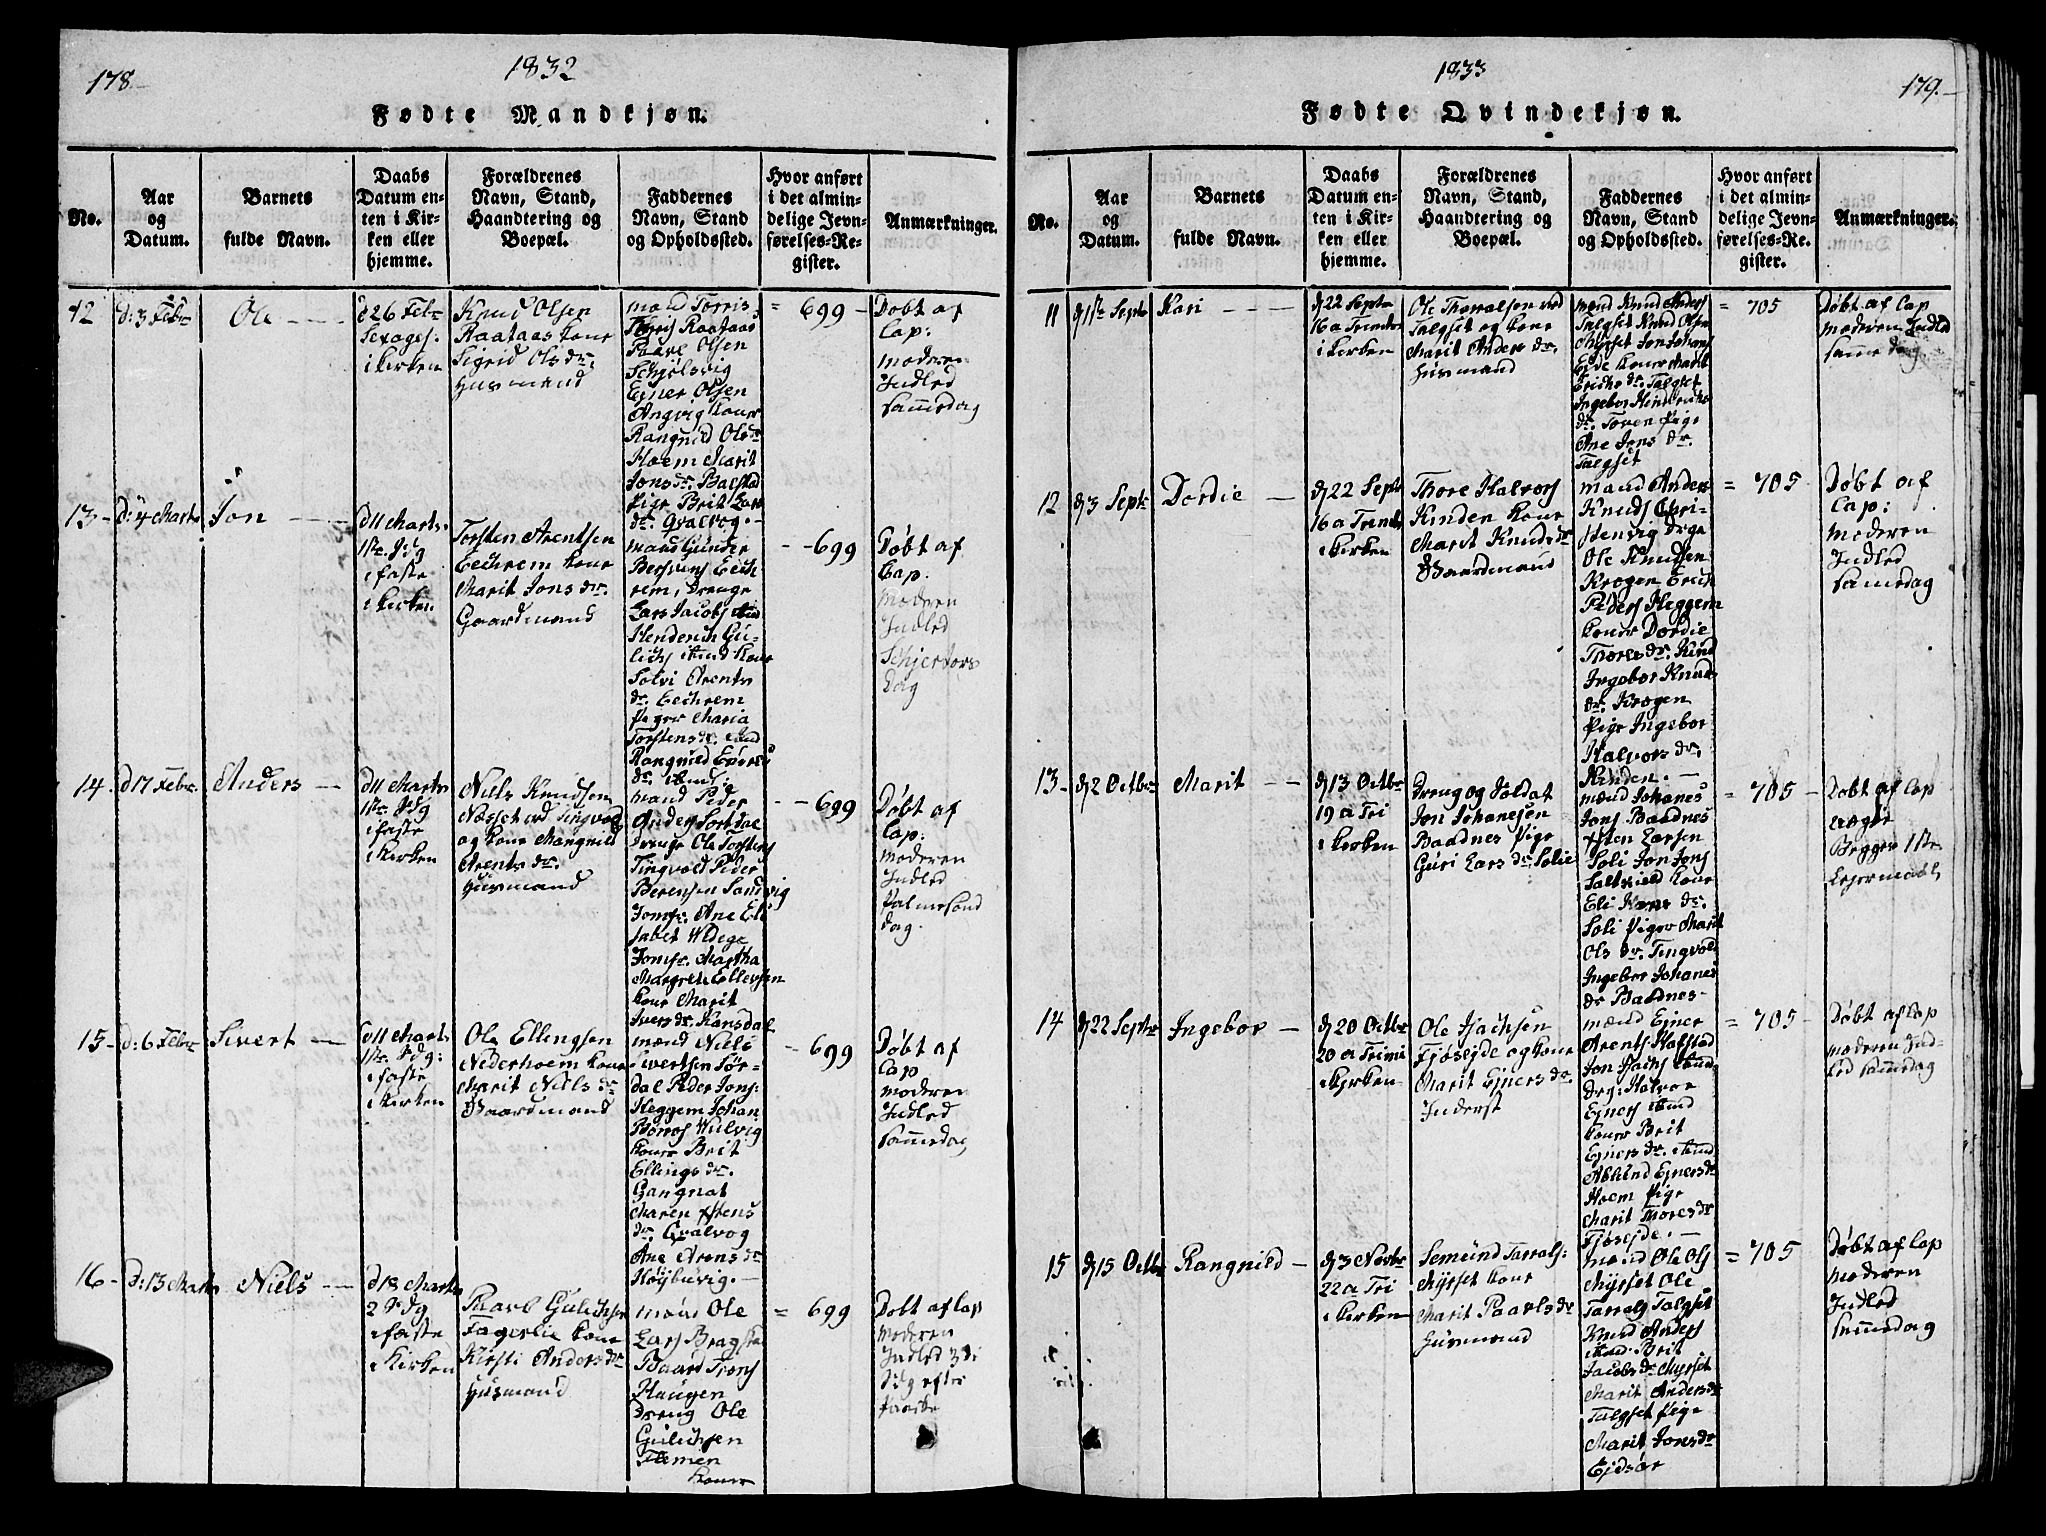 178
1832
Fødte Mandkjøn.
No.
Aar
og
Datum.
Barnets
fulde Navn.
Daabs
Datum en-
ten i Kir-
ken eller
hjemme.
Forældrenes
Navn, Stand,
Haandtering og
Boepæl.
Faddernes
Navn, Stand
og Opholdssted.
Hvor anført
i det almin-
delige Jevn-
førelses-Re-
gister.
Anmærkninger.
12
d: 3 Febr
Ole
d 26 Febr
Sexages:
i Kirken
Knud Olsen
Raataas kone
Sigrid Ols dr.
Husmand
mand Torris
Raataas
Paavl Olsen
Schjølsvig
Ejner Olsen
Angvig koner
Rangnild Ols dr
Hoem Marit
Jons dr. Balstad
Pige Brit Lars
dr. Gvalvog.
= 699
Døbt af
Cap:
moderen
Indled
sammedag
13
d: 4 Marts
Jon
d 11 Marts
1ste Sdg
i faste
i Kirken
Torsten Arentsen
Eechrem kone
Marit Jons dr.
Gaardmand
mand Gunder
Eech
rem, Drenge
Lars Jacobs
Henderich Gu-
lichs
Solvi Arents
dr. Eechrem
Piger Maria
Torstens dr.
Rangnild
dr.
699
Døbt af
Cap.
Moderen
Indled
Schjertors
dag
14
d 17 Febr.
Anders
d 11 Marts
1ste Sdg
i faste
i Kirken
Niels Knudsen
Næsset ved Tingvold
og kone Mangnild
Arents dr.
Husmand
mand Peder
Anders Sortdal
drenge Ole Torstens
Tingvold Peder
Berensen Sandvig
Jomfr. Ane Eli
sabet Wedege
Jomfr. Martha
Margrete Ellevsen
kone Marit
Ivers dr. Kansdal
699
Døbt af
Cap:
moderen
Indled
Palmesønd
dag.
15
d: 6 Febr
Sivert
d 11 Marts
1ste Sdg:
i faste
i Kirken
Ole Ellingsen
Nederhoem kone
Marit Niels dr
Gaardmand
mænd Niels
Sivertsen Sør-
dal Peder Jons:
Heggem Johan
Wulvig
koner Brit
Ellings dr.
Gangnat
Maren Ystens
dr. Gvalvog
Ane Arens dr
699
Døbt af
Cap
moderen
Indled
sammedag
16
d: 13 Marts
Niels
d 18 Marts
2 Sdg
i faste
i Kirken
Paavl Gulichsen
Fagerlie kone
Kirsti Anders dr
Husmand
mænd Ole
Lars Bragstad
Baard Trons
Haugen
Dreng Ole
Gulichsen
Flemen
koner
= 699
Døbt af Cap
Moderen
Indled 3di
Sdg efter
Paaske
1833
179.
Fødte Qvindekjøn.
No.
Aar
og
Datum.
Barnets
fulde Navn.
Daabs
Datum en-
ten i Kir-
ken eller
hjemme.
Forældrenes
Navn, Stand,
Haandtering og
Boepæl.
Faddernes
Navn, Stand
og Opholdssted.
Hvor anført
i det almin-
delige Jevn-
førelses-Re-
gister.
Anmærkninger.
11
d 1ste Septr
Kari
d 22 Septr
16 a Trinit
i Kirken
Ole Thoralsen ved
Talgset og kone
Marit Anders dr.
Husmand
mænd Knud Anders
Talgset Knud Olsen
Myrset Jon Johans
Ejde koner Marit
Erichs dr. Talgset
Ingebor Hinderichs
dr. Toven Pige
Ane Jons dr.
Talgset
= 705
Døbt af Cap
moderen Indled
samme dag
12
d 3 Septr
Dordie
d 22 Septr
16 a Trinit
i Kirken
Thore Halvors
Kinden kone
Marit Knuds dr
Gaardmand
mænd Anders
Knuds Chri-
stenvig drge
Ole Knudsen
Krogen Erich
Peders Heggem
koner Dordie
Thores dr. Kind
Ingebor Knuds
dr. Krogen
Pige Ingebor
Halvors dr.
Kinden.
= 705
Døbt af
Cap:
moderen
Indled
samedag
13
d 2 Octbr
Marit
d 13 Octbr
19 a Tri
i Kirken
Dreng og Soldat
Jon Johanesen
Baadnes Pige
Guri Lars dr. Solie
mænd Johanes
Jons Baadnes
Ysten Larsen
Soli Jon Jons
Saltvield kone
Eli dr.
Soli Piger Marit
Ols dr. Tingvold
Ingebor Johanes
dr Baadnes
= 705
Døbt af Cap
uægte
Begges 1ste
Lejermaal
14
d 22 Septr
Ingebor
d 20 Octbr
20 a Trini
i Kirken
Ole Isachsen
Fjøsejde og kone
Marit Ejners dr.
Inderst
mænd Ejner
Arents Hafstad
Jon Isachs
drg: Halvor
Ejners
koner Brit
Ejners dr.
Ejners dr
Hoem Pige
Marit Thores dr
Fjøsejde.
= 705
Døbt af Cap
moderen Ind-
led samedag
15
d 15 Octbr
Rangnild
d 3 Novbr
22 a Tri
i Kirken
Semund Tarrals:
Myrset kone
Marit Paavls dr
Husmand
mænd Ole Ols
Myrset Ole
Tarrals Talgset
Knud Anders
Brit
Jacobs dr Myrset
Marit Anders dr
Talgset Pige
Marit Jons dr
Ejdsør
= 705
Døbt af Cap
moderen
Indled
sammedag